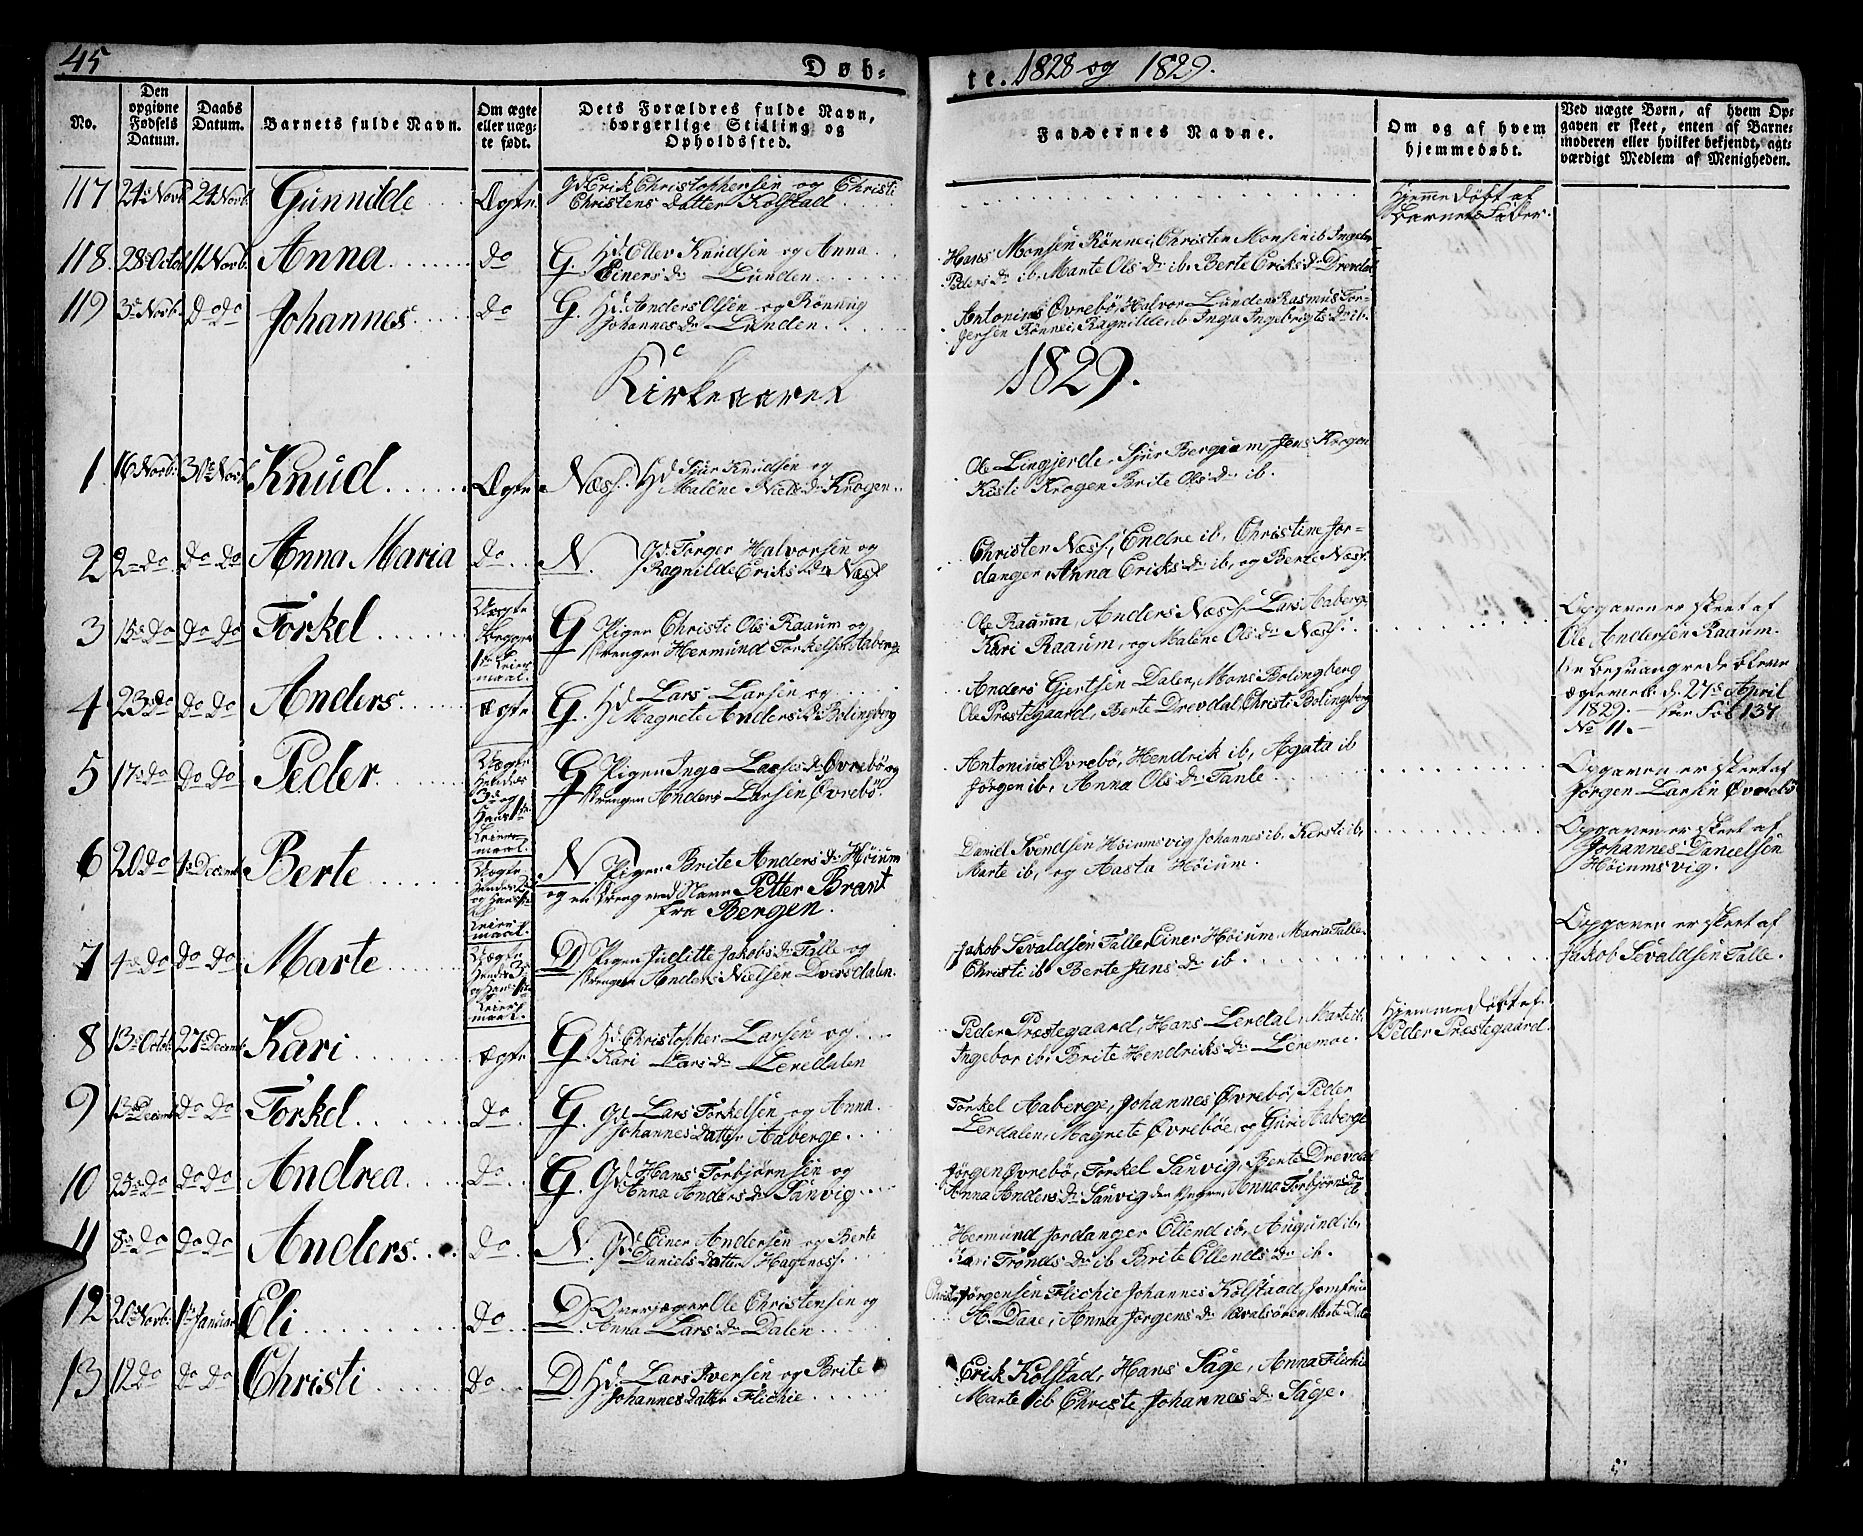 45
Døb-
te. 1828 og 1829.
No.
Den opgivne Fødsels Datum.
Daabs Datum.
Barnets fulde Navn.
Om ægte eller uæg-te født.
Dets Forældres fulde Navn, borgerlige Stilling og Opholdssted.
Faddernes Navne.
Om og af hvem hjemmedøbt.
Ved uægte Børn, af hvem Op-gaven er skeet, enten af Barne-moderen eller hvilket bekjendt, agt-værdigt Medlem af Menigheden.
117 24 Novb 24 Novb. Gunnilde Ægte Gd. Erik Christophersen og Christi
Christens Datter Kolstad
Hjemmedøbt af
Barnets Fader.
118. 28 Octob 11 Novb. Anna do G. Hd. Eller Knudsen og Anna
Einers Dr Lunden
Hans Monsen Rönnei, Christen Monsen ib Ingebor
Peders Dr ib. Marte Ols Dr ib. Berte Eriks Dr Drevdal
119 3 Novb. Do Do Johannes do G. Hd. Anders Olsen og Rönnug
Johannes Dr Lunden
Antonius Øvrebö, Halvor Lunden Rasmus Tor-
gersen Rönnei, Ragnilde ib Inga Ingebrigts Dr ib.
Kirkeaaret
1829.
1 16 Novb: 30te Novb. Knud Ægte Næss. Hd Sjur Knudsen og
Malene Niels Dr Krogen
Ole Lingjerde, Sjur Bergum, Jens Krogen
Kesti Krogen Brite Ols Dr ib.
2 2 do do do Anna Maria Do N Gd. Torger Halvorsen og
Ragnilde Eriks Dr Næss
Christen Næss, Endre ib, Christine Jor-
danger, Anna Eriks Dr ib, og Berte Næss.
3 15 do do do Torkel Uægte
Begges
1te Leier-
maal. G Pigen Christi Ols Raaum og
Drengen Hermund Torkelsen Aaberge
Ole Raaum, Anders Næss Lars Aaberge,
Kari Raaum, og Malene Ols Dr Næss.
Opgaven er skeet af
Ole Andersen Raaum.
De besvangrede bleve
ægteviede d. 27 April
1829. See Fol 137
No 11.
4 23 do do do Anders ægte G. Hd Lars Larsen og
Magrete Anders Dr Bolingberg
Anders Gjertsen Dalen, Mons Bolingberg
Ole Prestegaard, Berte Drevdal, Christi Bolingberg
5 17 do do do Peder Uægte
Hendes
3 og
Hans 1te
Leier-
maal. G Pigen Inga Lasses Dr Øvrebö og
Drengen Anders Larsen Øvrebö.
Antonius Øvrebö, Hendrik ib, Agata ib
Jørgen ib, Anna Ols Dr Tanle
Opgaven er skeet af
Jørgen Larsen Øvrebö
6 20 do 1 Decemb Berte Uægte
Hendes
og Hans
Leier-
maal. N Pigen Brite Anders Dr Höium
og en Dreng ved Navn Petter Brant
fra Bergen.
Daniel Svendsen Höiumsvig Johannes ib. Kersti ib.
Marte ib, og Aasta Höium.
Opgaven er skeet af
Johannes Danielsen
Höiumsvig.
7 4 do do do Marte Uægte
Hendes
og Hans
Leier-
maal. D Pigen Juditte Jakobs Dr Talle og
Drengen Anders Nielsen Dversdalen.
Jakob Sevaldsen Talle, Einer Höium, Maria Talle.
Christi ib Berte Jans Dr ib
Opgaven er skeet af
Jakob Sevaldsen Talle.
8 13 Octob. 27 Decemb Kari ægte G Hd. Christopher Larsen og
Kari Lars Dr Leredalen
Peder Prestegaard, Hans Lerdal, Marte ib.
Ingebor ib. Brite Hendriks Dr Leremoe.
Hjemmedøbt af
Peder Prestegaard
9 13 Decemb do do Torkel Do G. Gd Lars Torkelsen og Anna
Johannes Datter Aaberge
Torkel Aaberge, Johannes Øvrebö, Peder
Lerdalen, Magrete Øvreböe, og Guri Aaberge
10 25 do do do Andrea Do G. Gd. Hans Torbjørnsen og
Anna Anders Dr Sanvig
Jørgen Øvrebö, Torkel Sanvig, Berte Drevdal
Anna Anders Dr Sanvig den yngre, Anna Torbjørns Dr
11 8 do do do Anders Do N. Gd. Einer Andersen og Berte
Daniels Datter Hagenæss.
Hermund Jordanger Ellend ib, Augund ib,
Kari Tronds Dr ib Brite Ellends Dr ib.
12 20 Novb. 1te Januar Eli Do D Overjæger Ole Christensen og
Anna Lars Dr Dalen
Christen Jørgensen Flichie Johannes Kolstad, Jomfru
A. Daae, Anna Jørgens Dr Marte Dale
13 12 do do do Christi Do D Hd. Lars Iversen og Brite
Johannes Datter Flichie
Erik Kolstad, Hans Sage, Anna Flichie
Marte ib Christi Johannes Dr Sage.